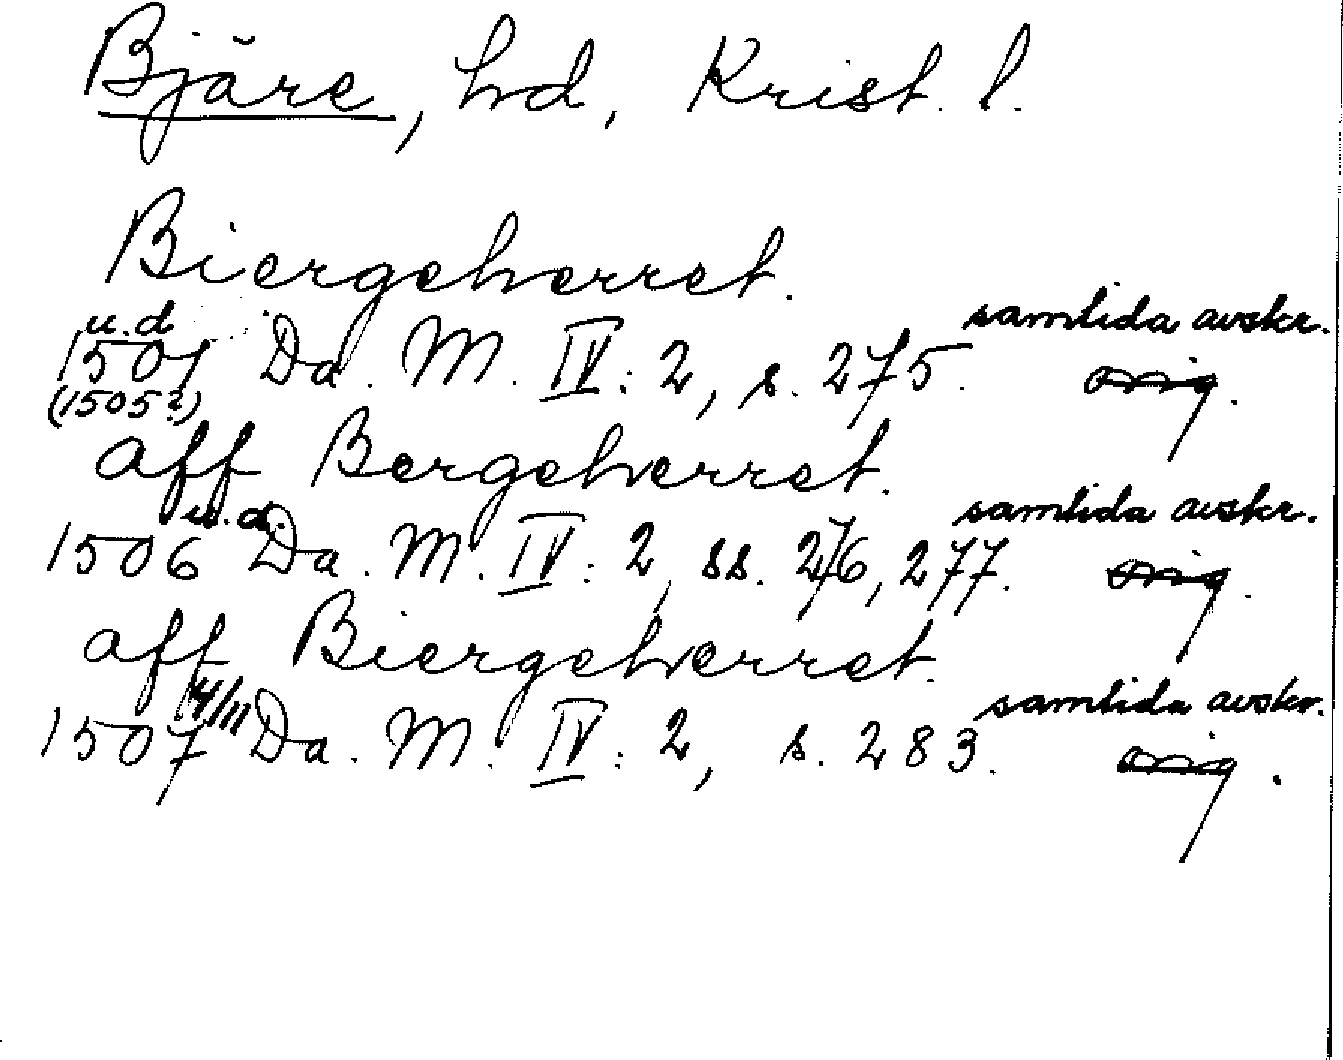 Bjäre, hd, Krist. l.
Biergeherret.
u.d samtida avskr.
1507 Da. M. IV: 2, s. 275. orig.
(1505?)
aff Bergeherret.
u.d. samtida avskr.
1506 Da. M. IV: 2, ss. 276, 277. orig.
aff Biergeherret.
4/11 samtida avskr.
1507 Da. M. IV: 2, s. 283. orig.